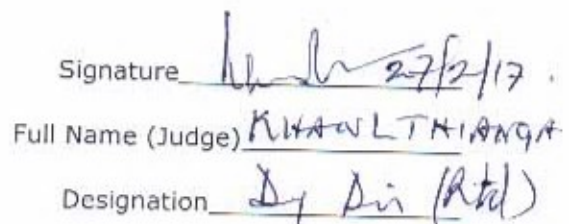 Signature 27/2/17.
Full Name (Judge) KHAWLTHIANGA
Designation Dy Dir (Rtd)